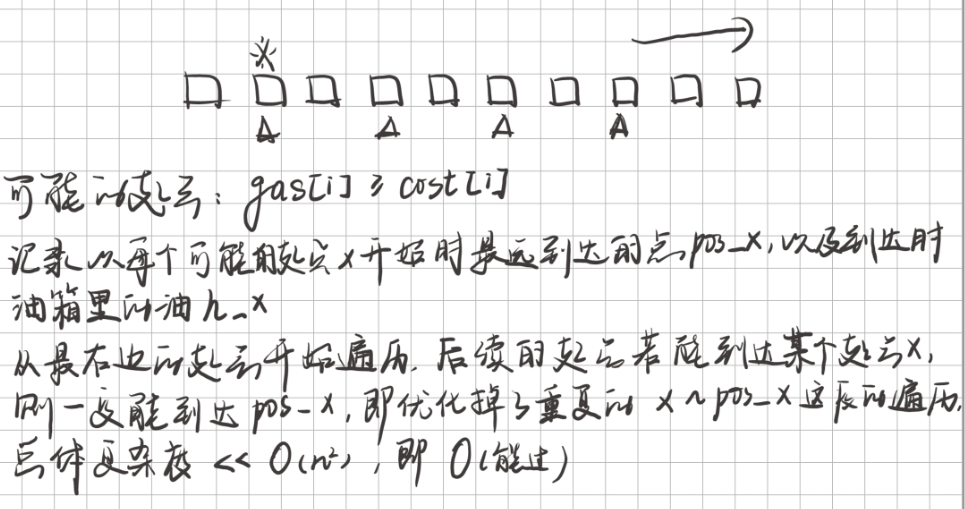 可能的起点：gas[i] ≥ cost[i]
记录以每个可能的起点x开始时最远到达的点pos_x，以及到达时
油箱里的油h_x
从最右边的起点开始遍历，后续的起点若能到达某个起点x，
则一定能到达pos_x，即优化掉了重复的x~pos_x这段的遍历，
总体复杂度 << O(n²)，即 O(能过)